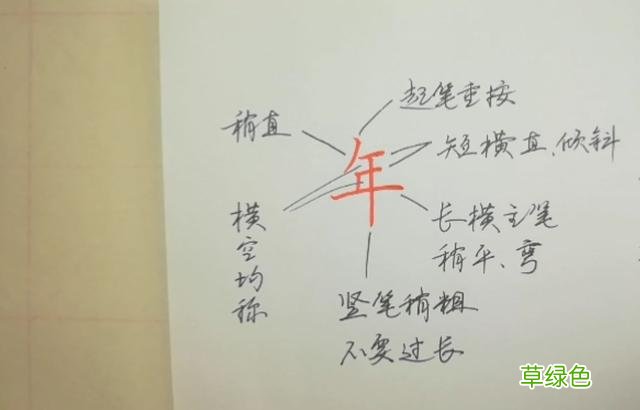 起笔重按
稍直
短横直、倾斜
年
横空均称
长横主笔
稍平、弯
竖笔稍粗
不要过长
草绿色